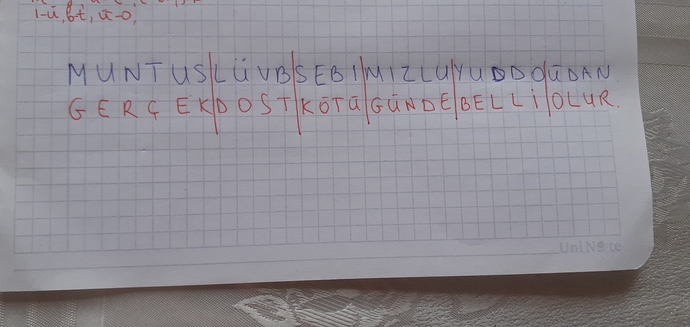 ı-ü, b-t, ü-o,
MUNTUS|LÜVB|SEBI|MIZLU|YUDDO|ÜDAN
GERÇEK|DOST|KÖTÜ|GÜNDE|BELLİ|OLUR.
UniNote